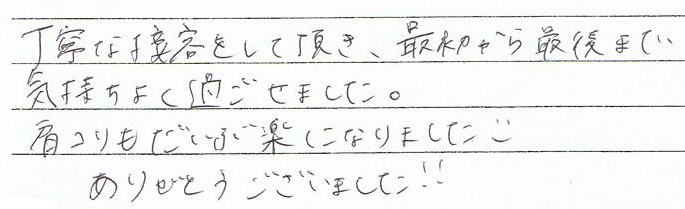 丁寧な接客をして頂き、最初から最後まで
気持ちよく過ごせました。
肩コリもだいぶ楽になりました
ありがとうございました!!